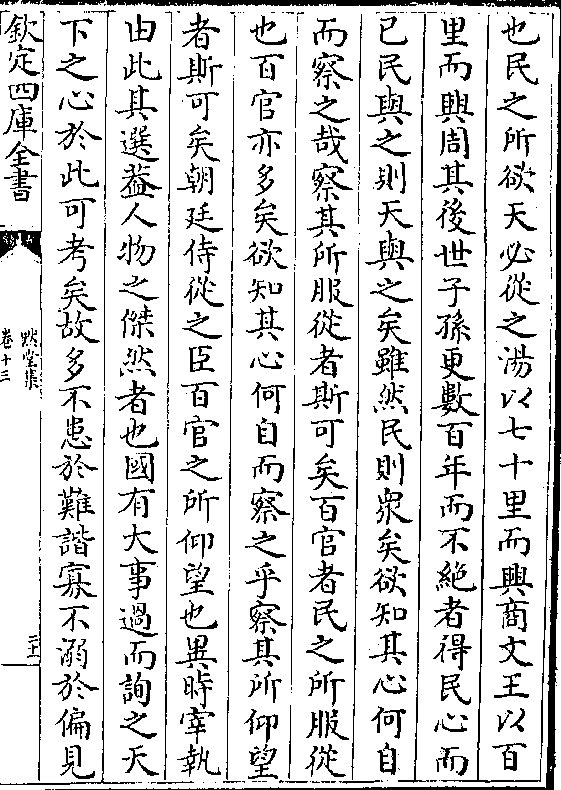 也民之所欲天必從之湯以七十里而興商文王以百
里而興周其後世子孫更數百年而不絕者得民心而
已民與之則天與之矣雖然民則衆矣欲知其心何自
而察之哉察其所服從者斯可矣百官者民之所服從
也百官亦多矣欲知其心何自而察之乎察其所仰望
者斯可矣朝廷侍從之臣百官之所仰望也異時宰執
由此其選葢人物之傑然者也國有大事過而詢之天
下之心於此可考矣故多不患於難諧寡不溺於偏見
欽定四庫全書
默堂集
卷十三